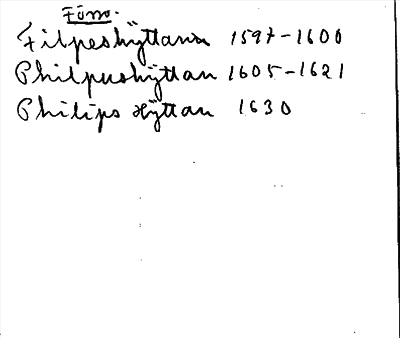 Förno.
Filpeshÿttann 1597-1600
Philpushÿttan 1605-1621
Philips Hÿttan 1630